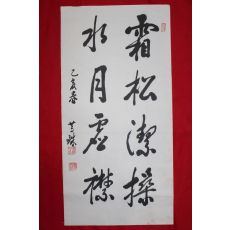 霜松潔操
水月虛襟
乙亥春